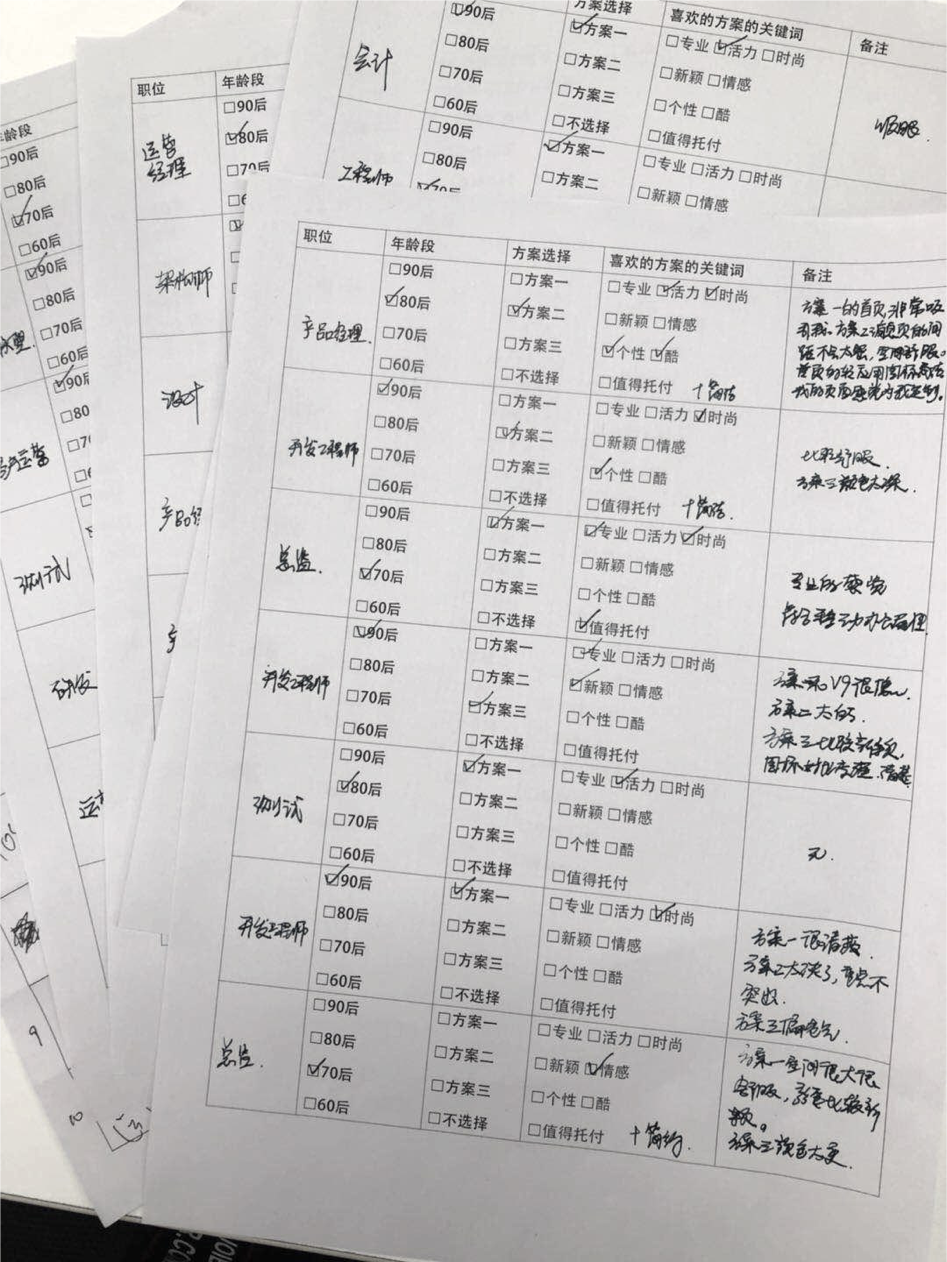 年龄段
□90后
□80后
☑70后
□60后
☑90后
□80后
□70后
□60后
☑90后
□80
运营
测试
研发
9
10
职位 年龄段
运营
经理
□90后
☑80后
□70后
架构师
设计
产品经
会计
☑90后
□80后
□70后
□60后
方案选择
☑方案一
□方案二
□方案三
□不选择
喜欢的方案的关键词
□专业 ☑活力 □时尚
□新颖 □情感
□个性 □酷
□值得托付
备注
舒服.
工程师
□90后
□80后
☑70后
☑方案一
□方案二
□专业 □活力 □时尚
□新颖 □情感
职位 年龄段 方案选择 喜欢的方案的关键词 备注
产品经理.
□90后
☑80后
□70后
□60后
□方案一
☑方案二
□方案三
□不选择
□专业 ☑活力 ☑时尚
□新颖 □情感
☑个性 ☑酷
□值得托付 十简洁
方案一的首页非常吸
引我.方案二
开发工程师
☑90后
□80后
□70后
□60后
□方案一
☑方案二
□方案三
□不选择
□专业 □活力 ☑时尚
□新颖 □情感
☑个性 □酷
□值得托付 十简洁.
比较舒服.
方案三颜色太深.
总监.
□90后
□80后
☑70后
□60后
☑方案一
□方案二
□方案三
□不选择
☑专业 □活力 ☑时尚
□新颖 □情感
□个性 □酷
☑值得托付
专业的感觉
符合移动办公
开发工程师
☑90后
□80后
□70后
□60后
□方案一
□方案二
☑方案三
□不选择
☑专业 □活力 □时尚
☑新颖 □情感
□个性 □酷
□值得托付
方案一和V9很像.
方案二太白.
方案三比较新颖,
测试
□90后
☑80后
□70后
□60后
☑方案一
□方案二
□方案三
□不选择
□专业 ☑活力 □时尚
□新颖 □情感
□个性 □酷
□值得托付
无.
开发工程师
☑90后
□80后
□70后
□60后
☑方案一
□方案二
□方案三
□不选择
□专业 □活力 ☑时尚
□新颖 □情感
□个性 □酷
□值得托付
方案一很清爽.
方案二太淡了,重点不
突出.
方案三偏
总监.
□90后
□80后
☑70后
□60后
□方案一
□方案二
□方案三
□不选择
□专业 □活力 □时尚
□新颖 ☑情感
□个性 □酷
□值得托付 十简约.
方案一空间很大很
舒服,
比较新
颖。
方案三颜色太